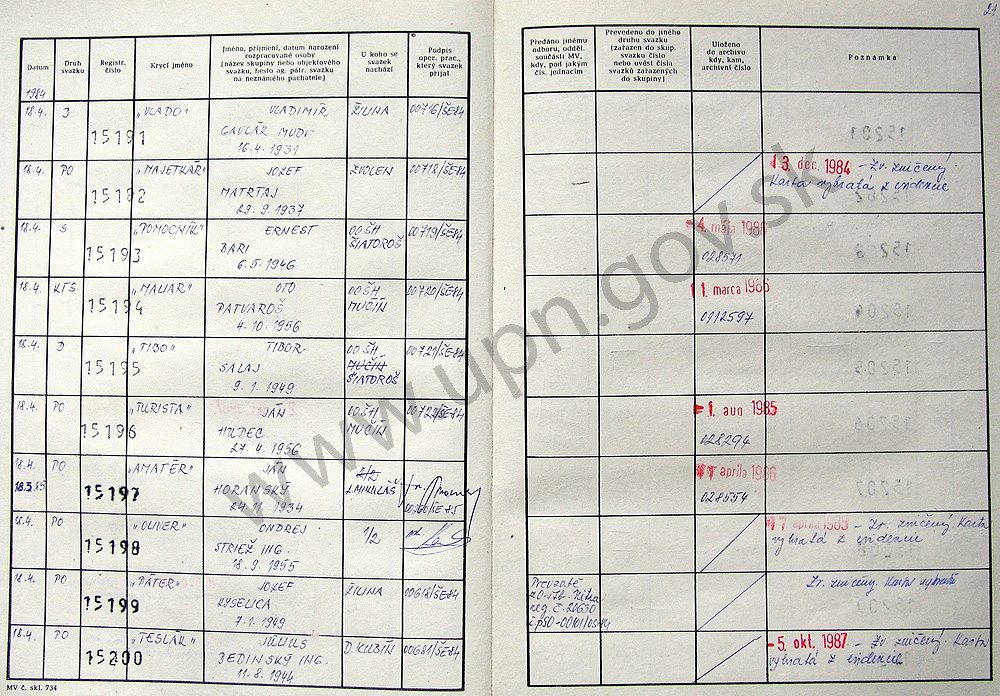 21
Datum
Druh svazku
Registr. číslo
Krycí jméno
Jméno, příjmení, datum narození rozpracované osoby (název skupiny nebo objektového svazku, heslo ag. pátr. svazku na neznámého pachatele)
U koho se svazek nachází
Podpis oper. prac., který svazek přijal
Předáno jinému odboru, odděl. součásti MV, kdy, pod jakým čís. jednacím
Převedeno do jiného druhu svazku (zařazen do skup. svazku číslo nebo uvést čísla svazků zařazených do skupiny)
Uloženo do archivu kdy, kam, archivní číslo
Poznámka
1984
18.4. J 15191 „VLADO" VLADIMÍR ŽILINA 00716/ŠE-84
GAVLÁK MUDr
16.4.1931
18.4. PO 15192 „MAJETKÁŘ" JOZEF ZVOLEN 00718/ŠE-84 3. dec. 1984 – Zv. zničený.
MATRTAJ Karta vybratá z evidencie
29.9.1937
18.4. S 15193 „POMOCNÍK" ERNEST OO ŠH 00719/ŠE-84 4. mája
BARI ŠIATOROŠ 028571
6.5.1946
18.4. KTS 15194 „MALIAR" OTO OO ŠH 00720/ŠE-84 1. marca 1986
PATVAROŠ MUČÍN 0112597
4.10.1956
18.4. D 15195 „TIBO" TIBOR OO ŠH 00721/ŠE-84
SALAJ MUČÍN
9.1.1949 ŠIATOROŠ
18.4. PO 15196 „TURISTA" JÁN OO ŠH 00722/ŠE-84 1. aug 1985
HUDEC MUČÍN 028294
27.4.1956
18.4. PO 15197 „AMATÉR" JÁN 2/2 apríla 1986
18.3.85 HORANSKÝ L.MIKULÁŠ 028554
24.11.1934
18.4. PO 15198 „OLIVER" ONDREJ 1/2 apríla – Zv. zničený, Karta
STRIEŽ ING. vybratá z evidencie
18.9.1955
18.4. PO 15199 „PÁTER" JOZEF ŽILINA Prevzaté Zv. zničený. Karta vybratá
KYSELICA Nitra
7.1.1949 reg. č.
18.4. PO 15200 „TESLÁK" JÚLIUS D. KUBÍN 00681/ŠE-84 5. okt. 1987 – Zv. zničený Karta
JEDINSKÝ ING. vybratá z evidencie
11.8.1944
MV č. skl. 734
www.upn.gov.sk